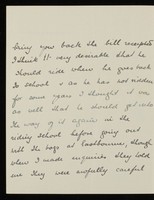 bring you back the bill receipted
I think it very desirable that he
should ride when he goes back
to school & as he has not ridden
for some years I thought it was
as well that he should get into
the way of it again in the
riding school before going out
with the boys at Eastbourne, though
when I made inquiries they told
me they were awfully careful